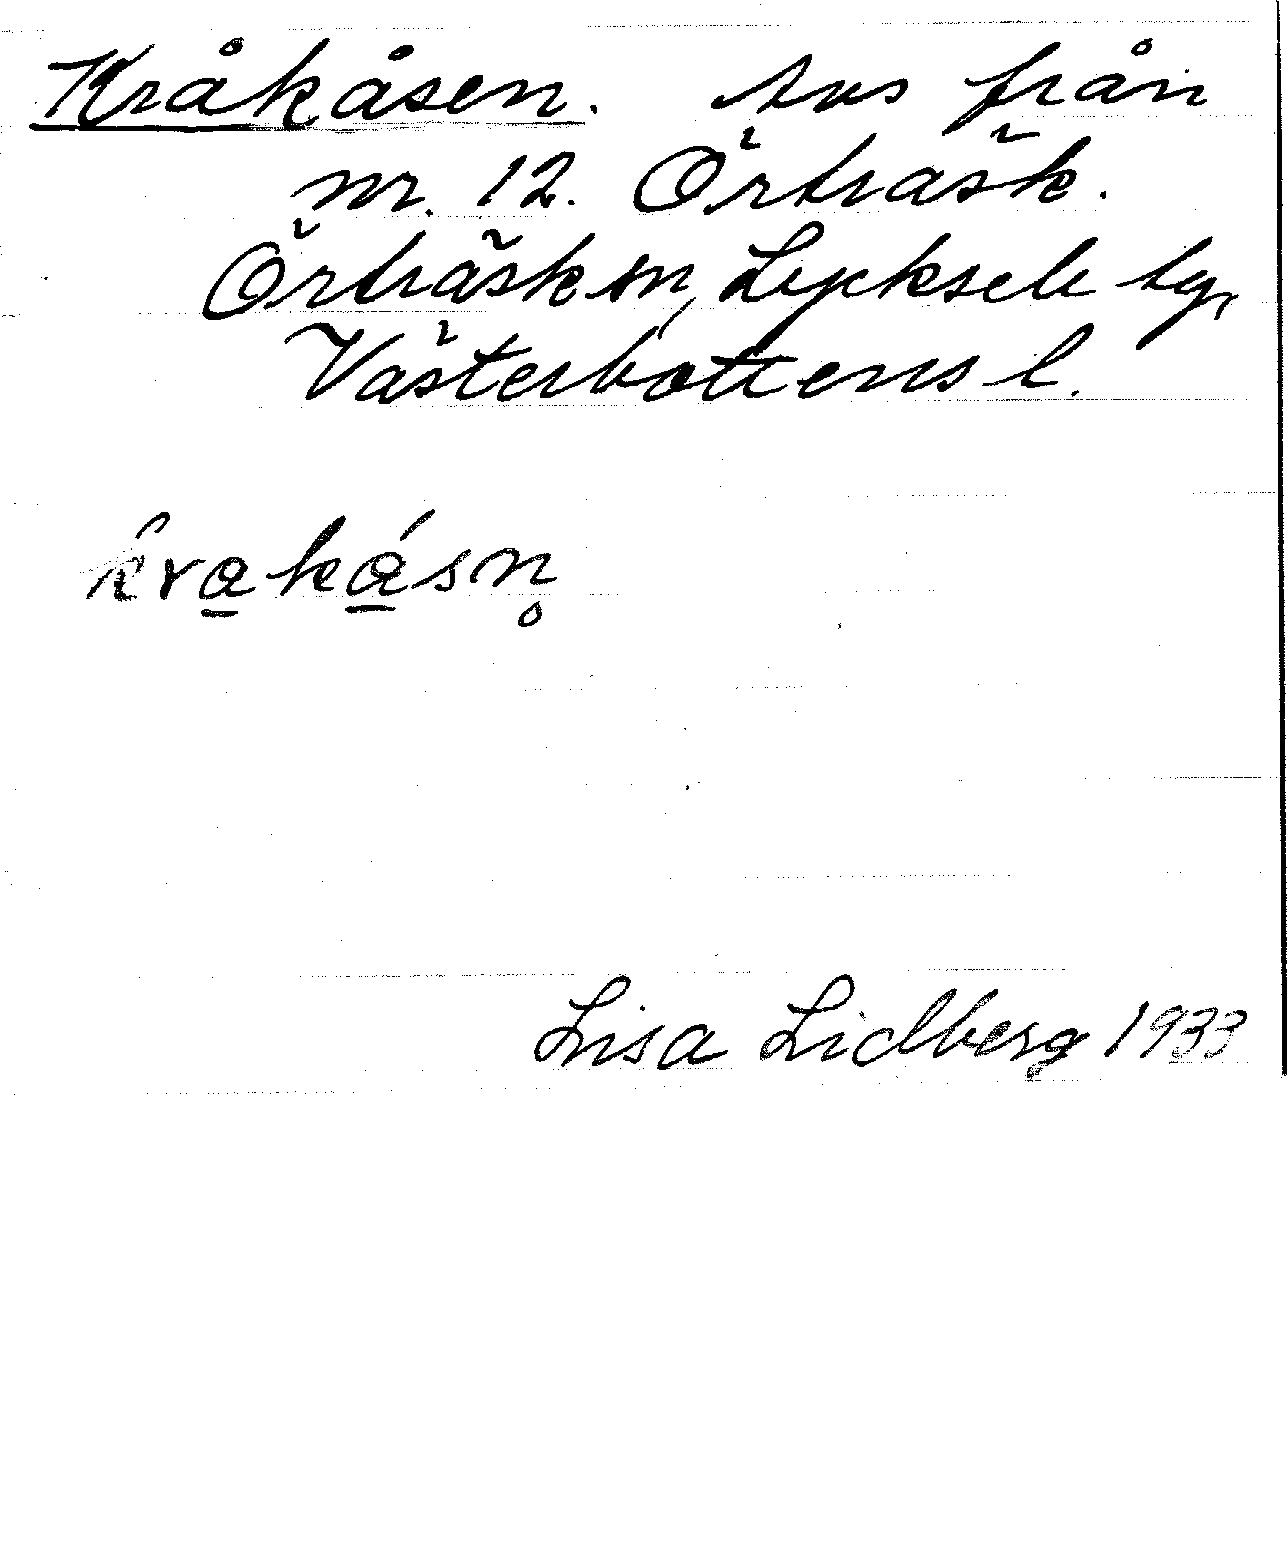 Kråkåsen. Avs från
nr. 12. Örträsk.
Örträsk sn, Lycksele tg,
Västerbottens l.
kra̲ká̲sn̥
Lisa Lidberg 1933